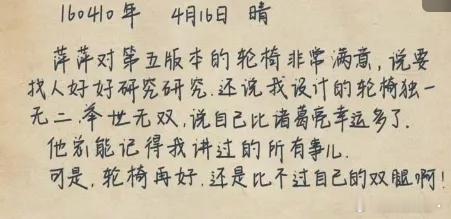 160410年 4月16日 晴
萍萍对第五版本的轮椅非常满意,说要
找人好好研究研究.还说我设计的轮椅独一
无二.举世无双,说自己比诸葛亮幸运多了.
他总能记得我讲过的所有事儿.
可是,轮椅再好.还是比不过自己的双腿啊!